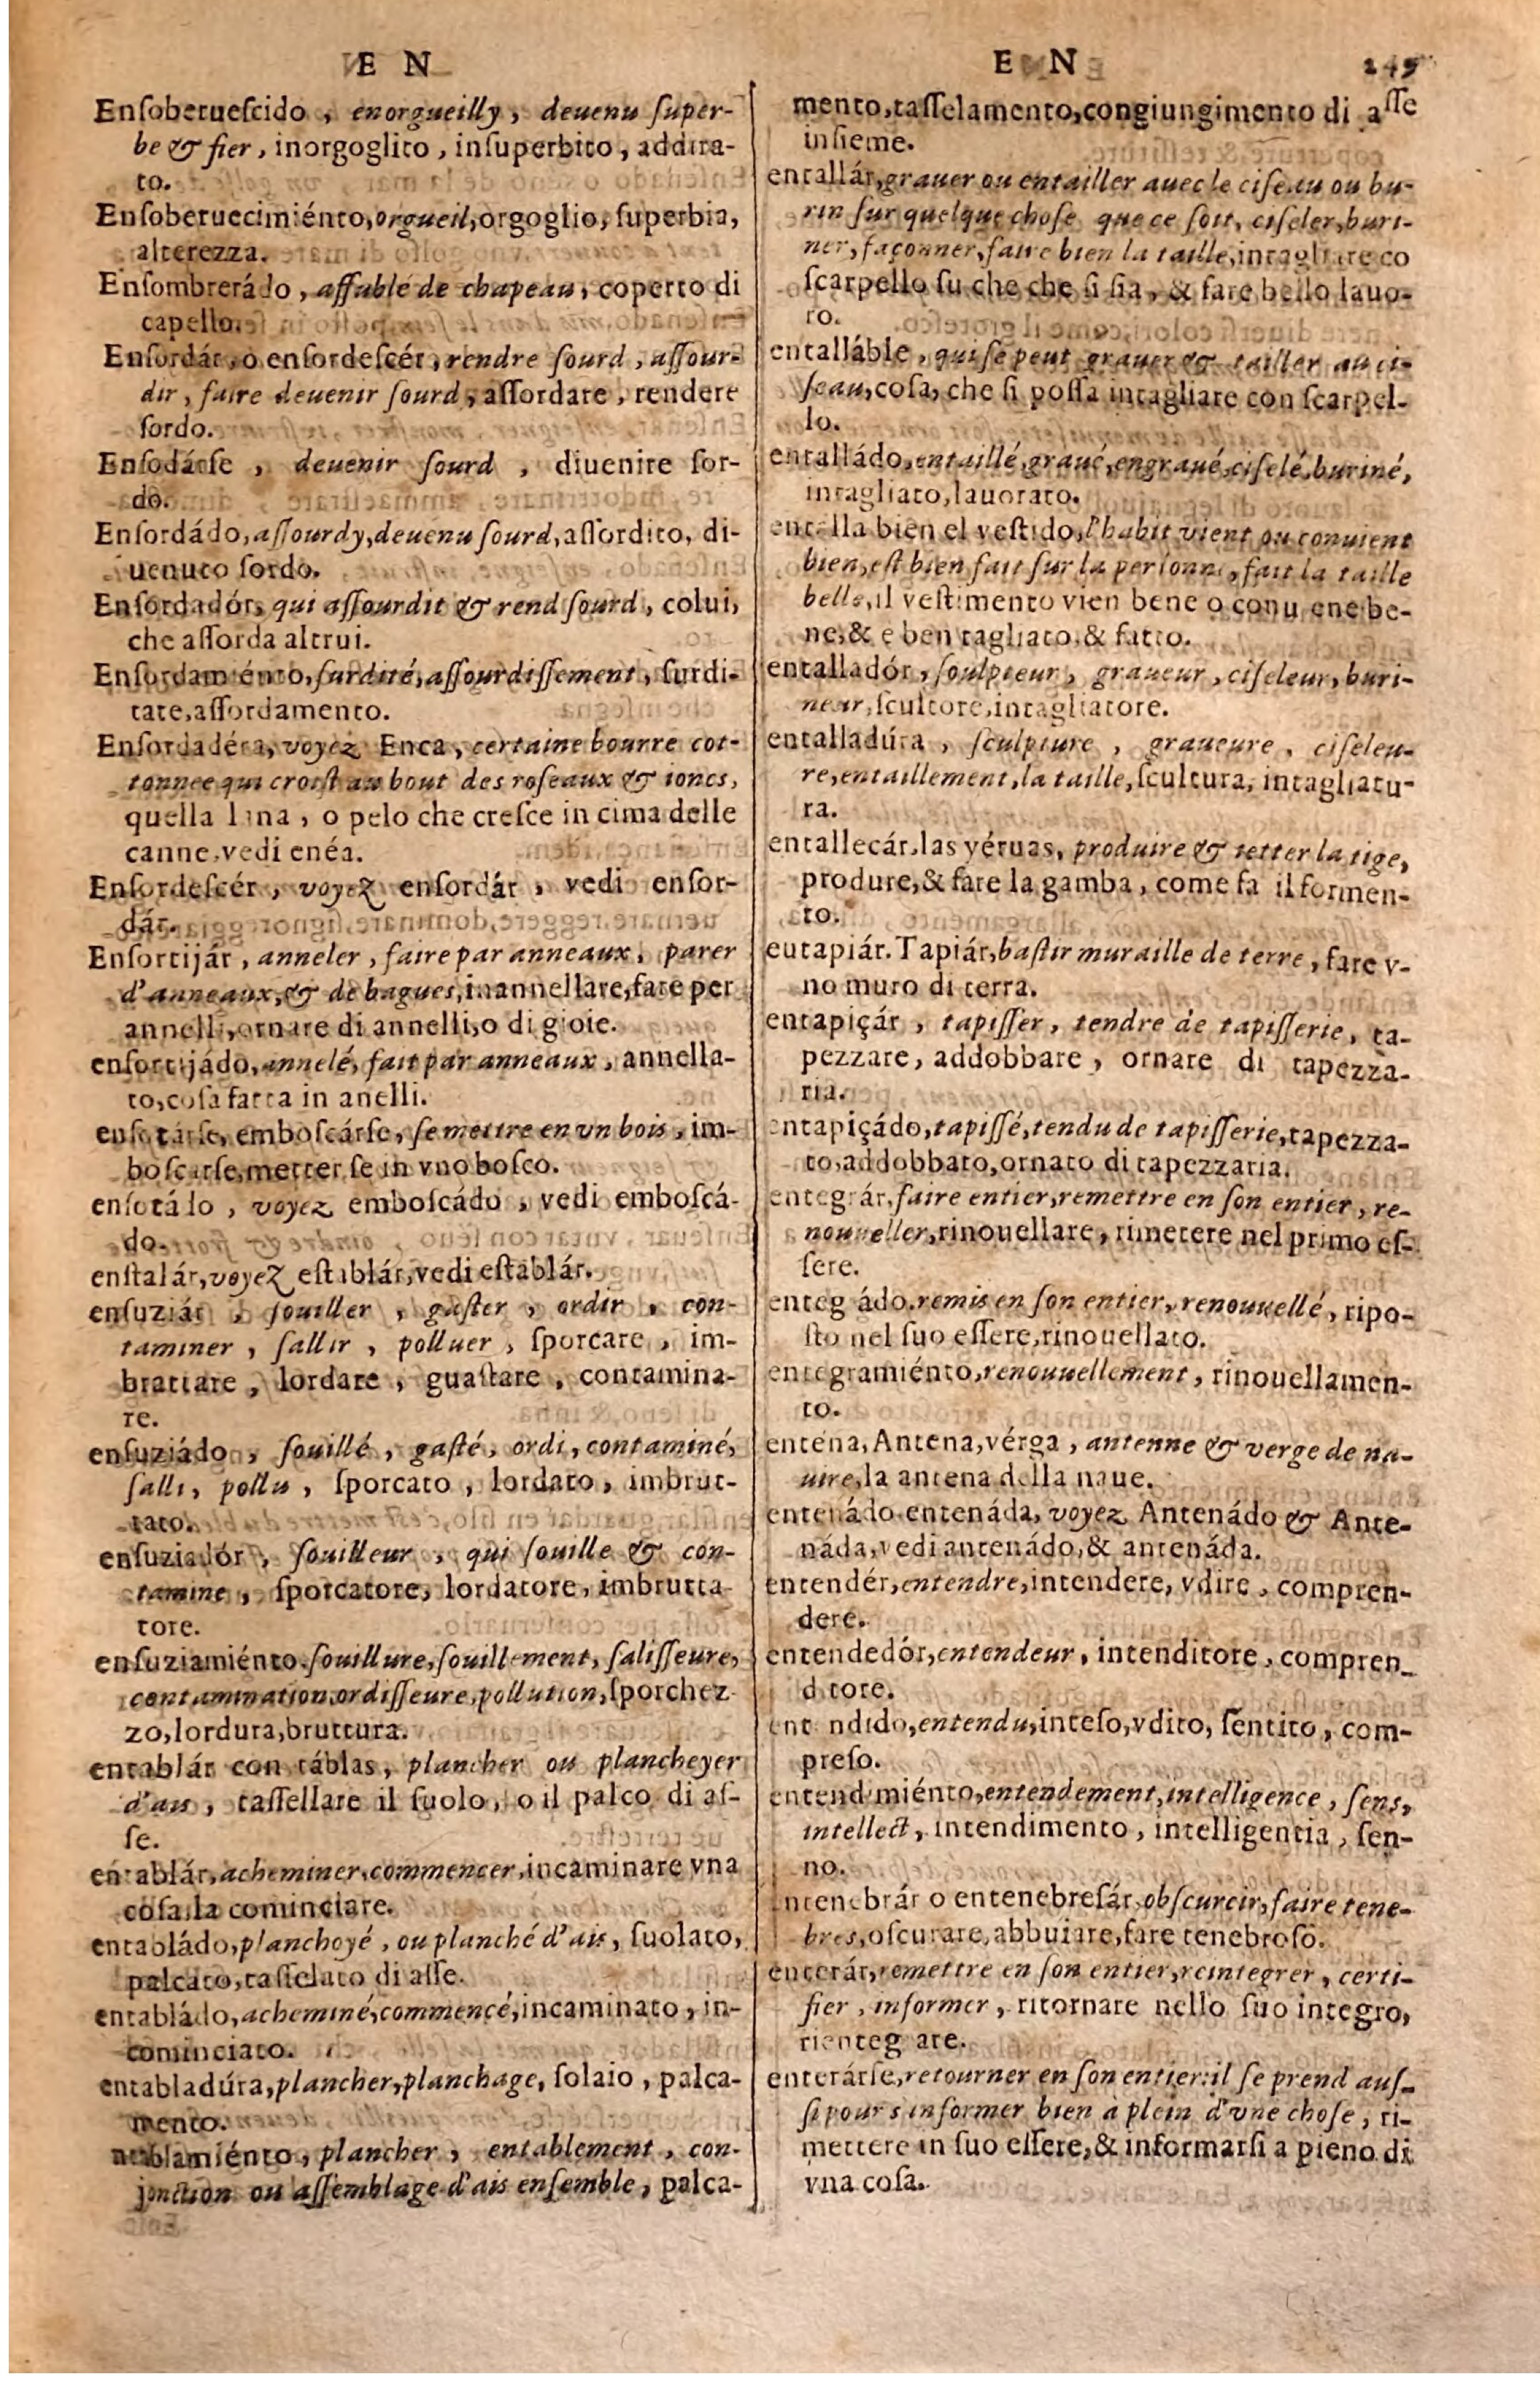 E N
Enſoberueſcido , enorgueilly , deuenu ſuper-
be & fier , inorgoglito , inſuperbito , addira-
to.
Enſoberuecimiénto, orgueil, orgoglio, ſuperbia,
alterezza.
Enſombrerádo , affublé de chapeau, coperto di
capello.
Enſordár, o enſordeſcér, rendre ſourd , aſſour-
dir , faire deuenir ſourd , aſſordare , rendere
ſordo.
Enſodárſe , deuenir ſourd , diuenire ſor-
do.
Enſordádo, aſſourdy, deuenu ſourd, aſſordito, di-
uenuto ſordo.
Enſordadór, qui aſſourdit & rend ſourd , colui,
che aſſorda altrui.
Enſordamiénto, ſurdité, aſſourdiſſement , ſurdi-
tate, aſſordamento.
Enſordadéra, voyez Enca , certaine bourre cot-
tonnee qui croiſt au bout des roſeaux & ioncs,
quella lana , o pelo che creſce in cima delle
canne, vedi enéa.
Enſordeſcér , voyez enſordár , vedi enſor-
dár.
Enſortijár , anneler , faire par anneaux , parer
d'anneaux, & de bagues, inannellare, fare per
annelli, ornare di annelli, o di gioie.
enſortijádo, annelé, fait par anneaux , annella-
to, coſa fatta in anelli.
enſotárſe, emboſcárſe, ſe mettre en vn bois , im-
boſcarſe, metter ſe in vno boſco.
enſotádo , voyez emboſcádo , vedi emboſcá-
do.
enſtalár, voyez eſtablár, vedi eſtablár.
enſuziár , ſouiller , gaſter , ordir , con-
taminer , ſallir , polluer , ſporcare , im-
brattare , lordare , guaſtare , contamina-
re.
enſuziádo , ſouillé , gaſté , ordi , contaminé,
ſalli, pollu , ſporcato , lordato , imbrut-
tato.
enſuziadór , ſouilleur , qui ſouille & con-
tamine , ſporcatore, lordatore, imbrutta-
tore.
enſuziamiénto. ſouillure, ſouillement, ſaliſſeure,
contamination, ordiſſeure, pollution, ſporchez
zo, lordura, bruttura.
entablár con táblas, plancher ou plancheyer
d'ais , taſſellare il ſuolo, o il palco di aſ-
ſe.
entablár, acheminer, commencer, incaminare vna
coſa, la cominciare.
entabládo, planchoyé , ou planché d'ais, ſuolato,
palcato, taſſelato di aſſe.
entabládo, acheminé, commencé, incaminato , in-
cominciato.
entabladúra, plancher, planchage, ſolaio , palca-
mento.
ntablamiénto , plancher , entablement , con-
jonction ou aſſemblage d'ais enſemble , palca-
E N 249
mento, taſſelamento, congiungimento di aſſe
inſieme.
entallár, grauer ou entailler auec le ciſeau ou bu-
rin ſur quelque choſe que ce ſoit, ciſeler, buri-
ner, façonner, faire bien la taille, intagliare co
ſcarpello ſu che che ſi ſia , & fare bello lauo-
ro.
entalláble , qui ſe peut grauer & tailler au ci-
ſeau, coſa, che ſi poſſa intagliare con ſcarpel-
lo.
entalládo, entaillé, graué, engraué, ciſelé, buriné,
intagliato, lauorato.
entalla bien el veſtido, l'habit vient ou conuient
bien, eſt bien fait ſur la perſonne, fait la taille
belle, il veſtimento vien bene o conuiene be-
ne, & e ben tagliato, & fatto.
entalladór , ſculpteur , graueur , ciſeleur, buri-
neur, ſcultore, intagliatore.
entalladúra , ſculpture , graueure , ciſeleu-
re, entaillement, la taille, ſcultura, intagliatu-
ra.
entallecár las yéruas, produire & ietter la tige,
produre, & fare la gamba , come fa il formen-
to.
eutapiár. Tapiár, baſtir muraille de terre , fare v-
no muro di terra.
entapiçár , tapiſſer , tendre de tapiſſerie , ta-
pezzare, addobbare , ornare di tapezza-
ria.
entapiçádo, tapiſſé, tendu de tapiſſerie, tapezza-
to, addobbato, ornato di tapezzaria.
entegrár, faire entier, remettre en ſon entier , re-
nouueller, rinouellare , rimetere nel primo eſ-
ſere.
entegrádo. remis en ſon entier, renouuellé , ripo-
ſto nel ſuo eſſere, rinouellato.
entegramiénto, renouuellement , rinouellamen-
to.
enténa, Antena, vérga , antenne & verge de na-
uire, la antena della naue.
entenádo entenáda, voyez Antenádo & Ante-
náda, vedi antenádo, & antenáda.
entendér, entendre, intendere, vdire , compren-
dere.
entendedór, entendeur , intenditore , compren-
ditore.
entendido, entendu, inteſo, vdito, ſentito , com-
preſo.
entendimiénto, entendement, intelligence , ſens,
intellect , intendimento , intelligentia , ſen-
no.
entenebrár o entenebreſár, obſcurcir, faire tene-
bres, oſcurare, abbuiare, fare tenebroſo.
enterár, remettre en ſon entier, reintegrer , certi-
fier , informer , ritornare nello ſuo integro,
rientegrare.
enterárſe, retourner en ſon entier: il ſe prend auſ-
ſi pour s'informer bien à plein d'vne choſe , ri-
mettere in ſuo eſſere, & informarſi a pieno di
vna coſa.